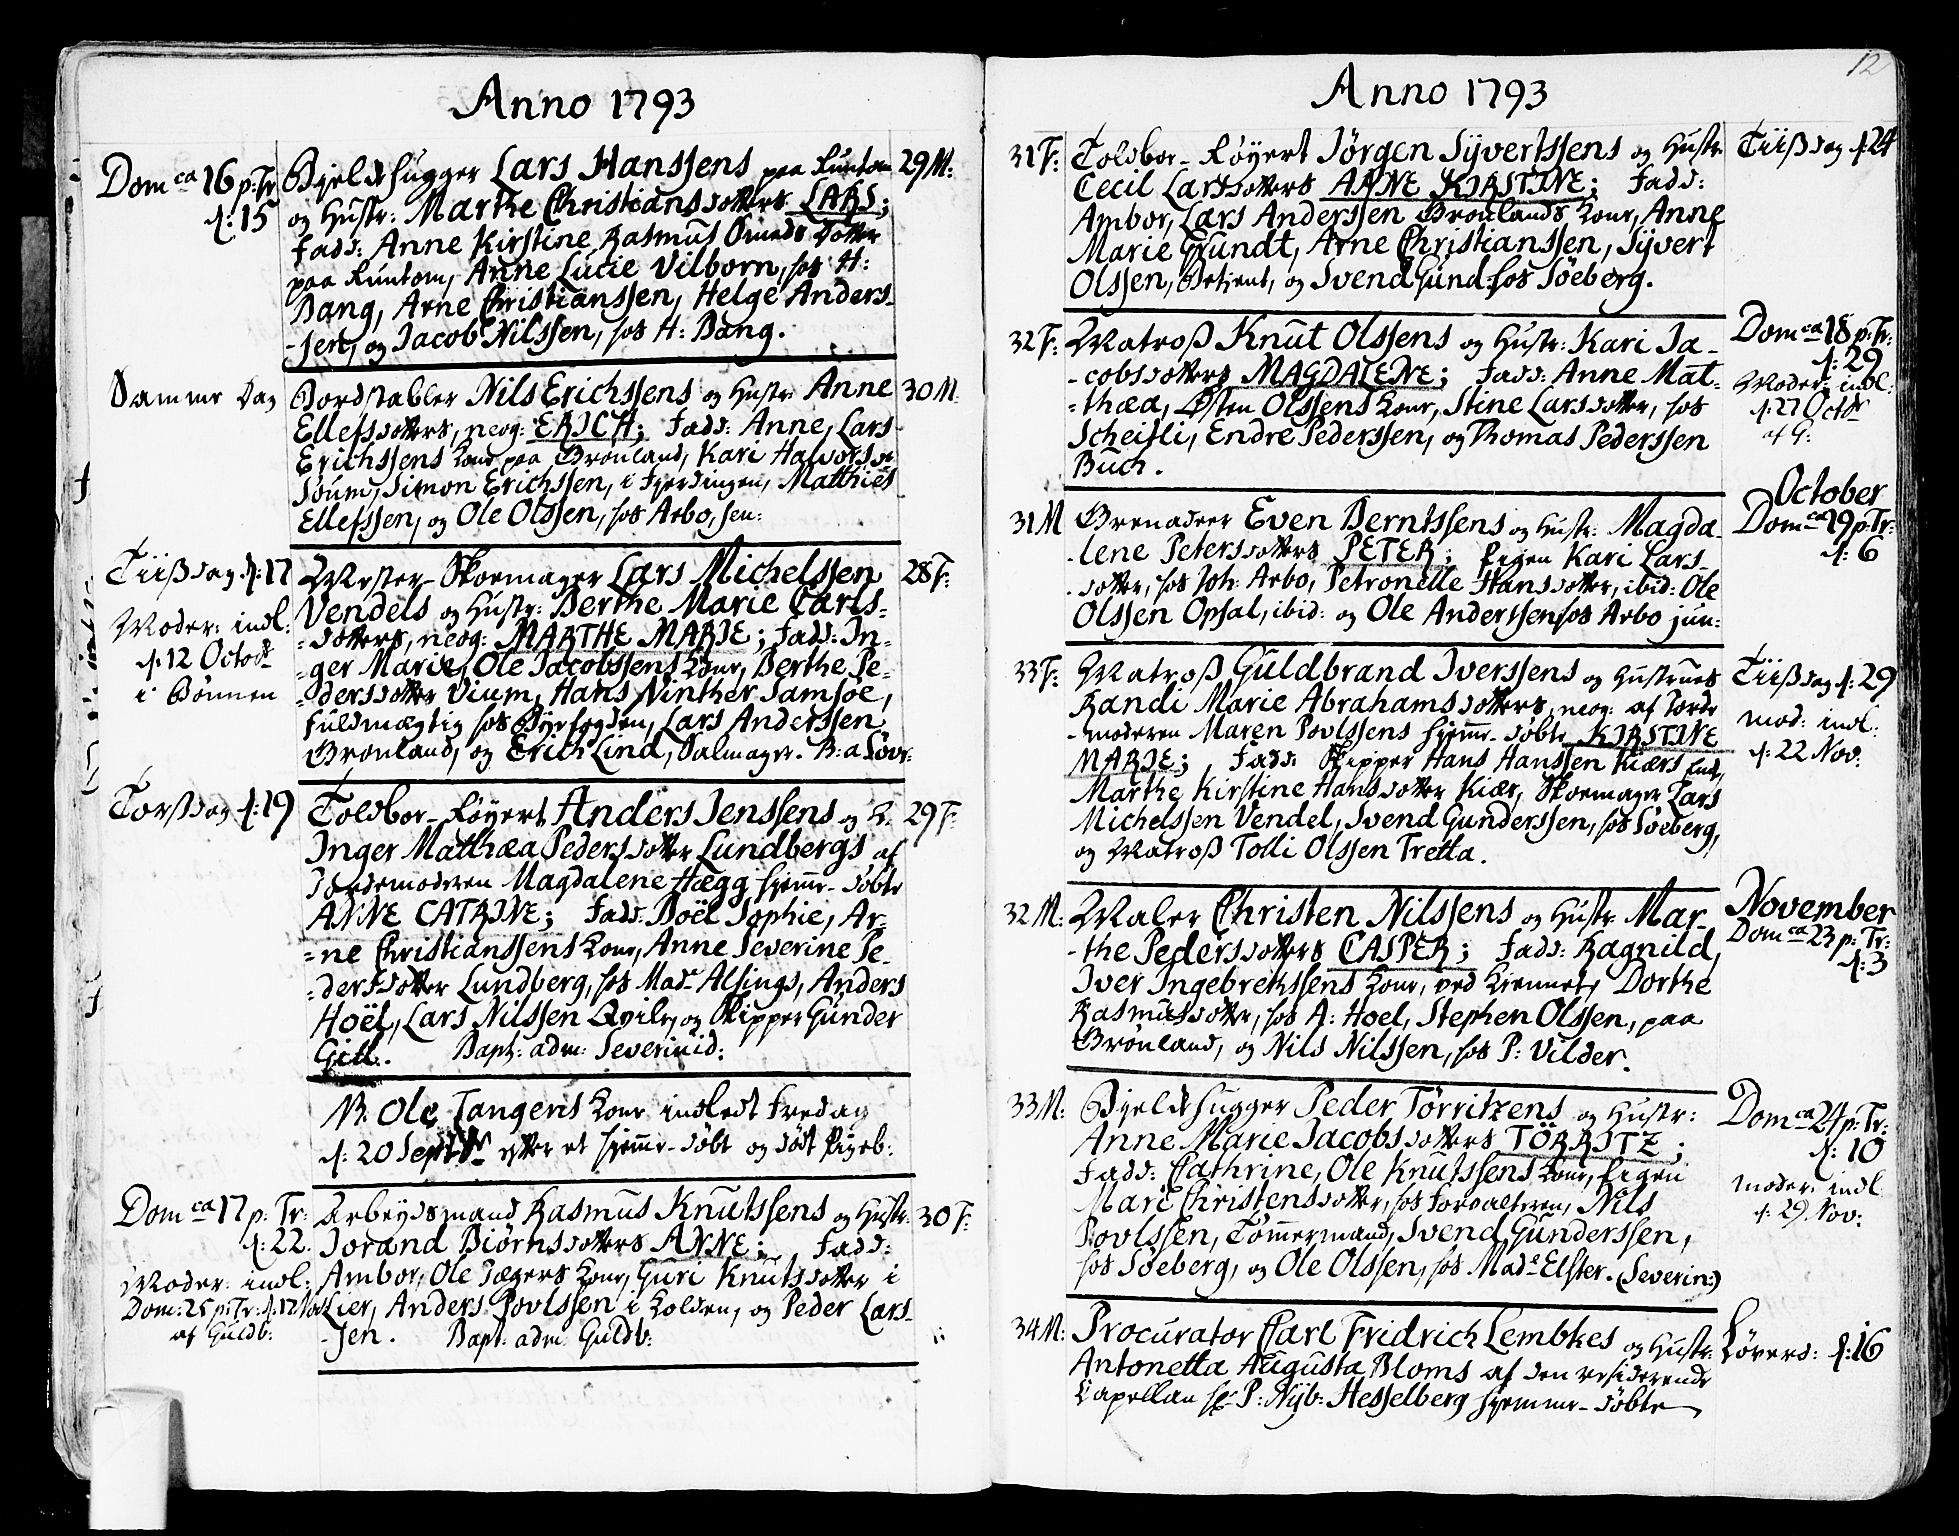 12
Anno 1793
Dom ca 16 p: Tr
d: 15
Bjelkhugger Lars Hanssens paa
og Hustr: Marthe Christiansdotters LARS;
Fadd: Anne Kirstine Rasmus Dotter
paa Anne Lucie Vilborn, hos H:
Bang, Arne Christianssen, Helge Anders-
-sen, og Jacob Nilssen, hos H: Bang.
29 M:
Samme Dag
Bordstabler Nils Erichssens og Hustr: Anne
Ellefsdotters, neog: ERICH; Fadd: Anne, Lars
Erichssens Kone paa Grønland, Kari Halvorsd:
Simon Erichssen, i Fjerdingen, Matthies
Ellefssen, og Ole Olssen, hos Arbo, sen:
30 M:
Tiißdag d: 17
Moder: indl:
d: 12 Octobr
i Bønnen
Mester-Skoemager Lars Michelssen
Vendels og Hustr: Berthe Marie Carls-
-dotters, neog: MARTHE MARIE; Fadd: In-
-ger Marie, Ole Jacobssens Kone, Berthe Pe-
-dersdotter Vium, Hans Ninther Samsøe,
Fuldmægtig hos Byefogden, Lars Anderssen
Grønland, og Erich Lind, Salmager. B: a
28 F:
Torßdag d: 19
Toldboe-Røyert Anders Jenssens og H:
Inger Mathæa Pedersdotter Lundbergs af
Jordemoderen Magdalene Hægg hjemme-døbte
ANNE CATRINE; Fadd: Boël Sophie, Ar-
-ne Christianssens Kone, Anne Severine Pe-
-dersdotter Lundberg, hos Madme Alsings, Anders
Hoël, Lars Nilssen Qvile, og Skipper Gunder
Gill. Bapt: adm: Severinid:
29 F:
NB. Ole Tangens Kone indledt Fredag
d: 20 Septbr efter et hjemme-døbt og dødt Pigeb:
Dom ca 17 p: Tr:
d: 22.
Moder: indl:
Dom: 25 p: Tr: d: 17 Nov
af Guldb:
Arbeydsmand Rasmus Knutssens og Hustr:
Jorand Biørnsdotters ANNE; Fadd:
Ambor, Ole Jægers Kone, Guri Knutsdotter i
Lier, Anders Povlssen i Kolden, og Peder Lars-
-sen. Bapt: adm: Guldb:
30 F:
Anno 1793
31 F:
Toldboe-Røyert Jørgen Syvertssens og Hustr:
Cecil Larsdotters ANNE KIRSTINE; Fadd:
Ambor, Lars Anderssen Grønlands Kone, Anne
Marie Grundt, Arne Christianssen, Syvert
Olssen, Betient, og Svend Gund: hos Søeberg.
Tiißdag d: 24
32 F:
Matroß Knut Olssens og Hustr: Kari Ja-
-cobsdotters MAGDALENE; Fadd: Anne Mat-
-thæa, Østen Olssens Kone, Stine Larsdotter, hos
Scheitli, Endre Pederssen, og Thomas Pederssen
Buch.
Dom ca 18 p: Tr:
d: 29
Moder: indl:
d: 27 Octobr
af G:
31 M
Grenadeer Even Berntssens og Hustr: Magda-
-lene Petersdotters PETER; Pigen Kari Lars-
-dotter, hos Joh: Arbo, Petronelle Hansdotter, ibid: Ole
Olssen Opsal, ibid: og Ole Anderssen hos Arbo jun:
October
Dom ca 19 p: Tr:
d: 6
33 F:
Matroß Guldbrand Iverssens og Hustrues
Randi Marie Abrahamsdotters, neog: af Jorde
-moderen Maren Povlssens hjemme-døbte KIRSTINE
MARIE; Fadd: Skipper Hans Hanssen Kiærs Enke,
Marthe Kirstine Hansdotter Kiær, Skoemager Lars
Michelssen Vendel, Svend Gunderssen, hos Søeberg,
og Matroß Tolli Olssen Tretta.
Tiißdag d: 29
Mod: indl:
d: 22 Nov:
32 M:
Maler Christen Nilssens og Hustr: Mar-
-the Pedersdotters CASPER; Fadd: Ragnild,
Iver Ingebretssens Kone, ved Dorthe
Rasmusdotter, hos A: Hoel, Stephen Olssen, paa
Grønland, og Nils Nilssen, hos P: Vilder.
November
Dom ca 23 p: Tr:
d: 3
33 M:
Bjelkhugger Peder Törritzens og Hustr:
Anne Marie Jacobsdotters TÖRRITZ;
Fadd: Cathrine, Ole Knutssens Kone, Pigen
Mari Christensdotter, hos Forvalteren, Nils
Povlssen, Tømmermand, Svend Gunderssen,
hos Søeberg, og Ole Olssen, hos Made Elster. (Severin:)
Dom ca 24 p: Tr:
d: 10
Moder: indl:
d: 29 Nov:
34 M:
Procurator Carl Fridrich Lembkes og Hustr:
Antonetta Augusta Bloms af den residerende
Capellan hr P: Nyb: Hesselberg hjemme-døbte
Løverd: d: 16